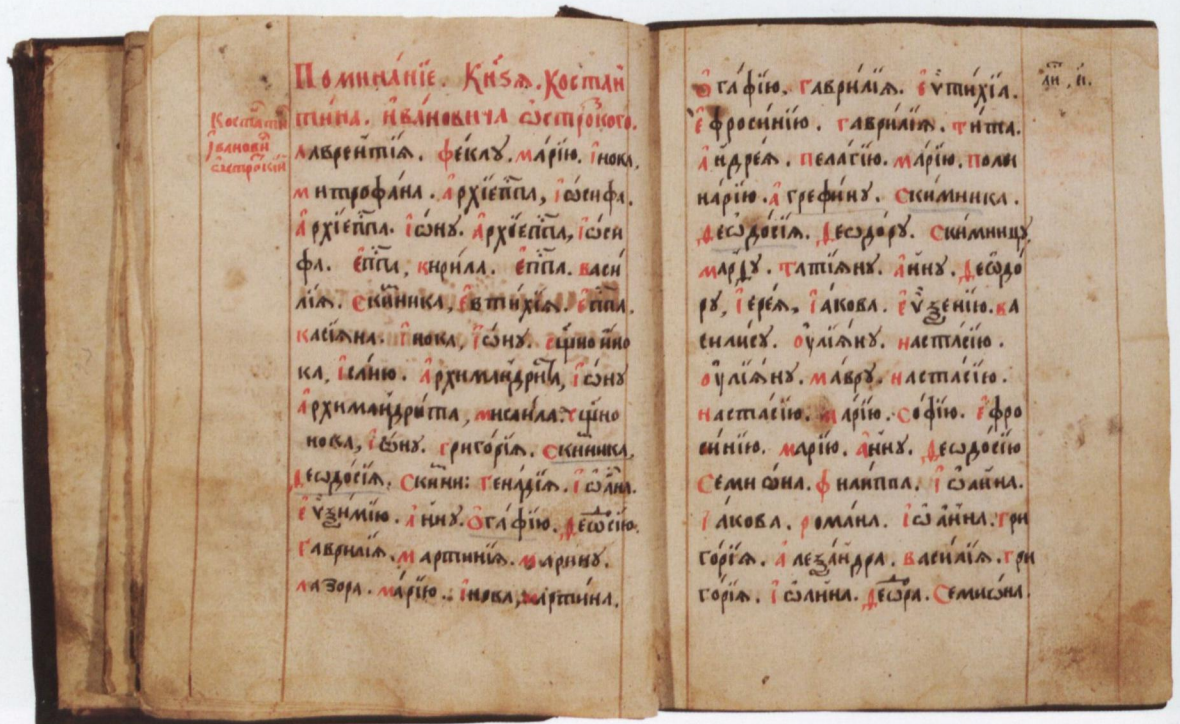 Помина́нїе. Кн҃ѕѧ. Костан
тина. Ива́новича ѡстро́зкого.
Коста̑тин
Іванови
ѡстро́кїи
лаврентїѧ. феклу. ма́рїю. і́нока,
митрофа́на. а́рхїеп҃па, іѡ́сифа.
а́рхїеп҃па. іѡ́ну. а́рхїеп҃па, іѡ́си
фа. е҃п҃па, кири́ла. е҃п҃па. васи
лїѧ. скимника, е́втихїѧ. е҃п҃па.
касїѧна. і́нока, іѡ́ну. сщ҃нои҆но
ка, іса́їю. а́рхимандрита, іѡ́ну
а́рхимандрыта, мисаила. сщ҃но
нока, іѡ́ну. григо́рїѧ. скимника,
Ѳеѡдо́сїѧ. Скимн: генадїѧ. іѡа́на.
еѵѯи́мїю. а́нну. ѻгафїю. Ѳеѡсїю.
гаврилїѧ. мартинїѧ. марину.
лазора. ма́рїю. і́нока, мартина.
ѻ҆га́фїю. гаврилїѧ. еѵти́хїѧ.
ефроси́нїю. гаврилїѧ. тита.
а́ндре́ѧ. пелагїю. ма́рїю. поли
на́рїю. а́грефи́ну. ски́мника.
Ѳеѡдо́сїѧ. Ѳеѡдо́ру. скимницу,
марѳу. татїѧну. а́нну. Ѳеѡдо́
ру, і́ере́ѧ, і́а́кова. еѵѯе́нїю. ва
силису. ѹлїѧну. настасїю.
ѹлїѧну. ма́вру. настасїю.
настасїю. ма́рїю. софїю. е́фро
си́нїю. марїю. а́нну. Ѳеѡдо́сїю
Семиѡ́на. филиппа. іѡа́нна.
і́а́кова. рома́на. іѡа́нна. гри
го́рїѧ. алеѯа́ндра. василїѧ. гри
го́рїѧ. іѡа́нна. Ѳеѡ́ра. Семиѡна.